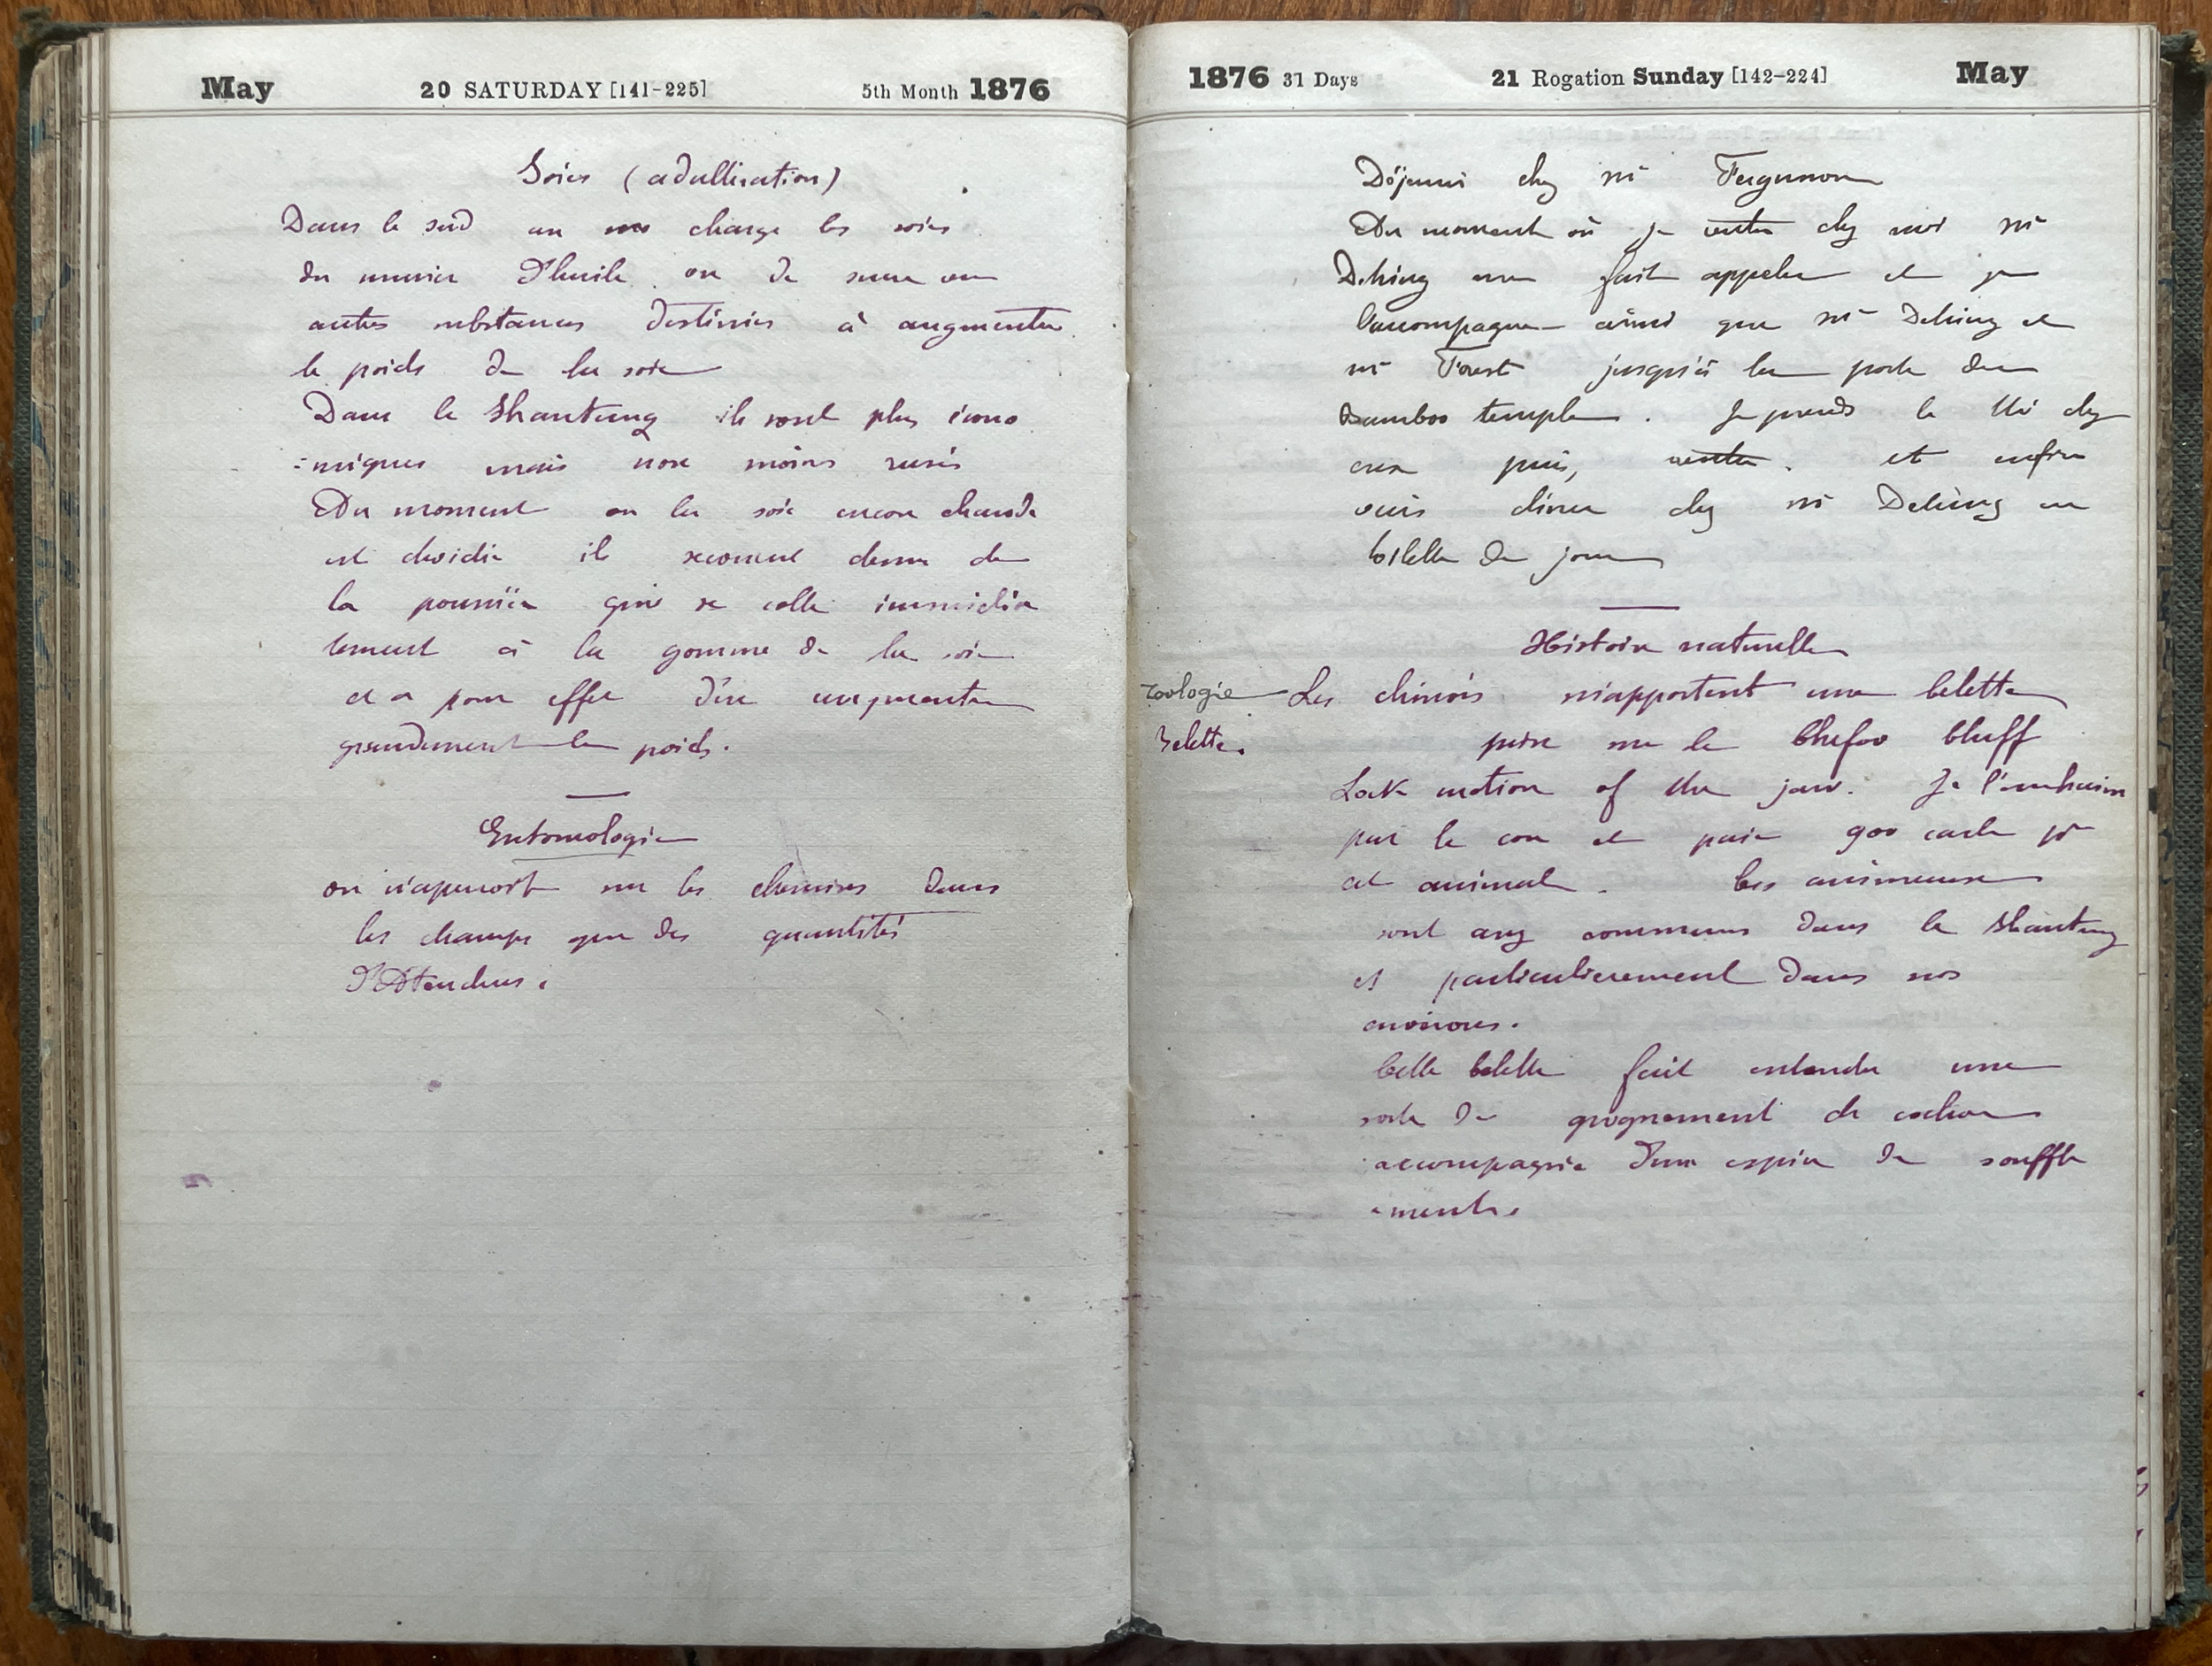 May 20 SATURDAY [141-225] 5th Month 1876
Soies (adultération)
Dans le sud on charge les soies
du mercier d'huile ou de sucre ou
autres substances destinées à augmenter
le poids de la soie
Dans le Shantung ils sont plus écono
=miques mais non moins rusés
Du moment ou la soie encore chaude
est devidée il secouent dessus de
la poussière qui se colle immédia
tement à la gomme de la soie
et a pour effet d'en augmenter
grandement le poids.
Entomologie
on n'aperçoit sur les chemins dans
les champs que des quantités
d'Ateuchus.
1876 31 Days 21 Rogation Sunday [142-224] May
Déjeuner chez mr Ferguson
Du moment où je rentre chez moi mr
Detring me fait appeler et je
l'accompagne ainsi que mr Detring et
mr Forest jusqu'à la porte du
Bamboo temple. Je prends le thé chez
eux puis, rentre. et enfin
vais diner chez mr Detring en
toilette de jour
Histoire naturelle
Zoologie Les chinois m'apportent une belette
Belette. prise sur le Chefoo bluff
Lock motion of the jaw. Je l'enchaine
par le cou et paie 900 cash pr
cet animal. Ces animaux
sont assez communs dans le Shantung
et particulierement dans nos
environs.
Cette belette fait entendre une
sorte de grognement de cochon
accompagné d'une espèce de souffle
-ment.